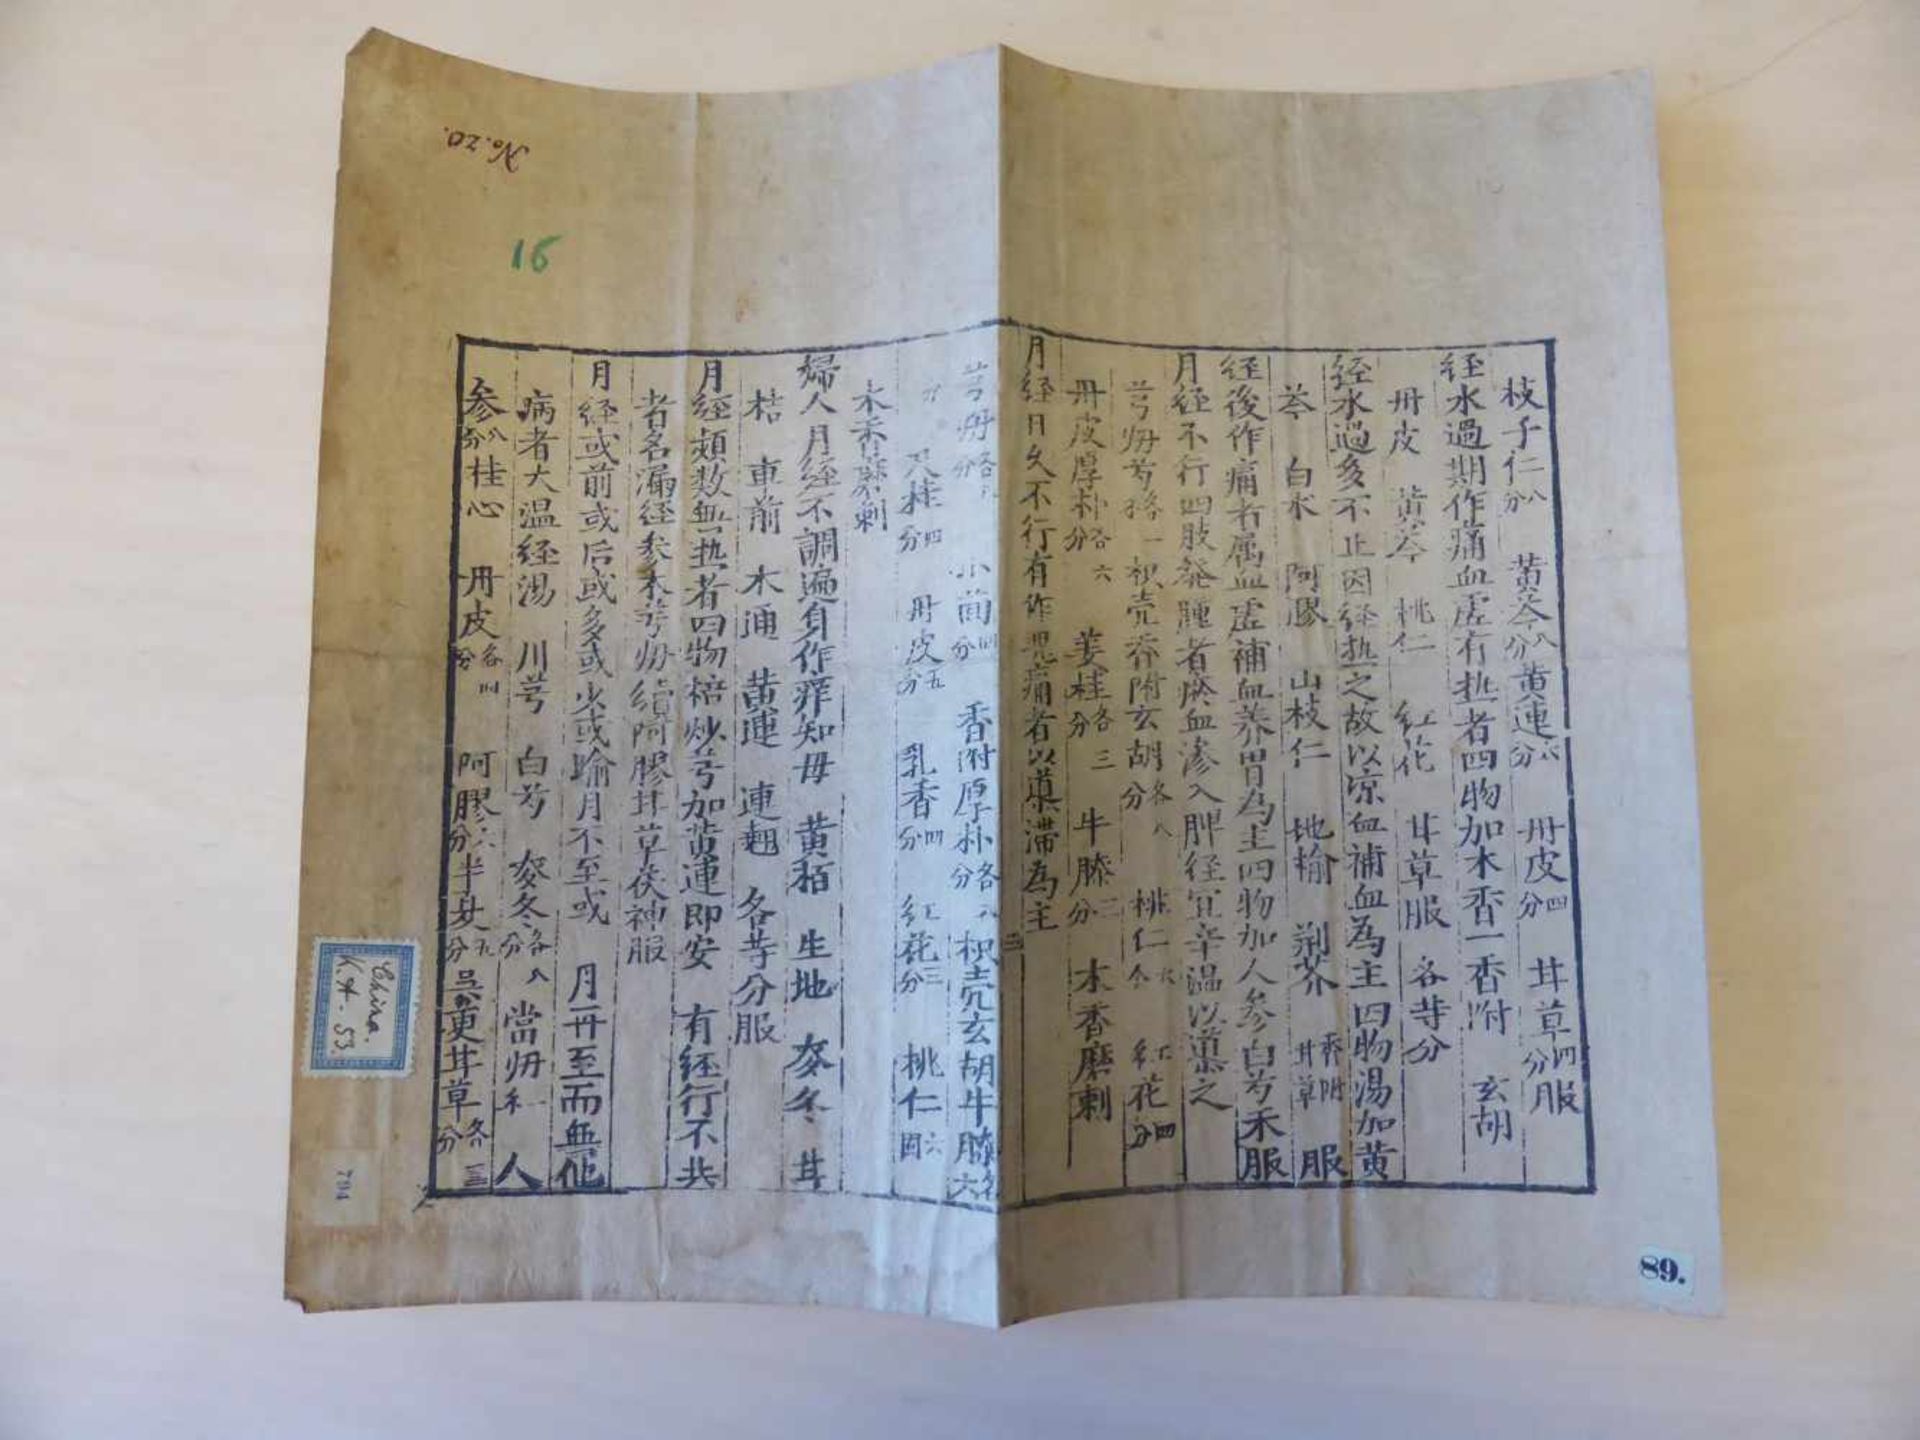 枝子仁八分 黄芩八分 黄連六分 丹皮四分 甘草四分服
経水過期作痛血虚有热者四物加木香一香附 玄胡
丹皮 黄芩 桃仁 紅花 甘草服 各等分
経水過多不止因経热之故以凉血補血為主四物湯加黄
芩 白术 阿膠 山枝仁 地榆 荆芥 香附 甘草 服
経後作痛者属血虚補血养胃為主四物加人参白芍禾服
月経不行四肢發腫者瘀血渗入脾経宜辛温以導之
芎归芍 一枳壳 香附玄胡各八分 桃仁六分 紅花四分
丹皮厚朴各六分 姜桂各三分 牛膝二分 木香磨刺
月経日久不行有作 痛者以導滞為主
三
芎归各八分 小茴四分 香附厚朴各八分枳壳玄胡牛膝各六
分 肉桂四分 丹皮五分 乳香四分 紅花三分 桃仁六因
木香磨刺
婦人月経不調遍身作痒知毋 黄栢 生地 麥冬 甘
桔 車前 木通 黄連 連翹 各等分服
月経頻数無热者四物棓炒芎加黄連即安 有経行不共
者名漏経参术芎归續阿膠甘草茯神服
月経或前或后或多或少或喻月不至或 月一丹至而無他
病者大温経湯 川芎 白芍 麥冬各八分 當归 人
参八分桂心 丹皮各四分 阿膠六分半夏五分吳茰甘草各三分
No. 20.
16
China.
K.H. 53.
704
89.